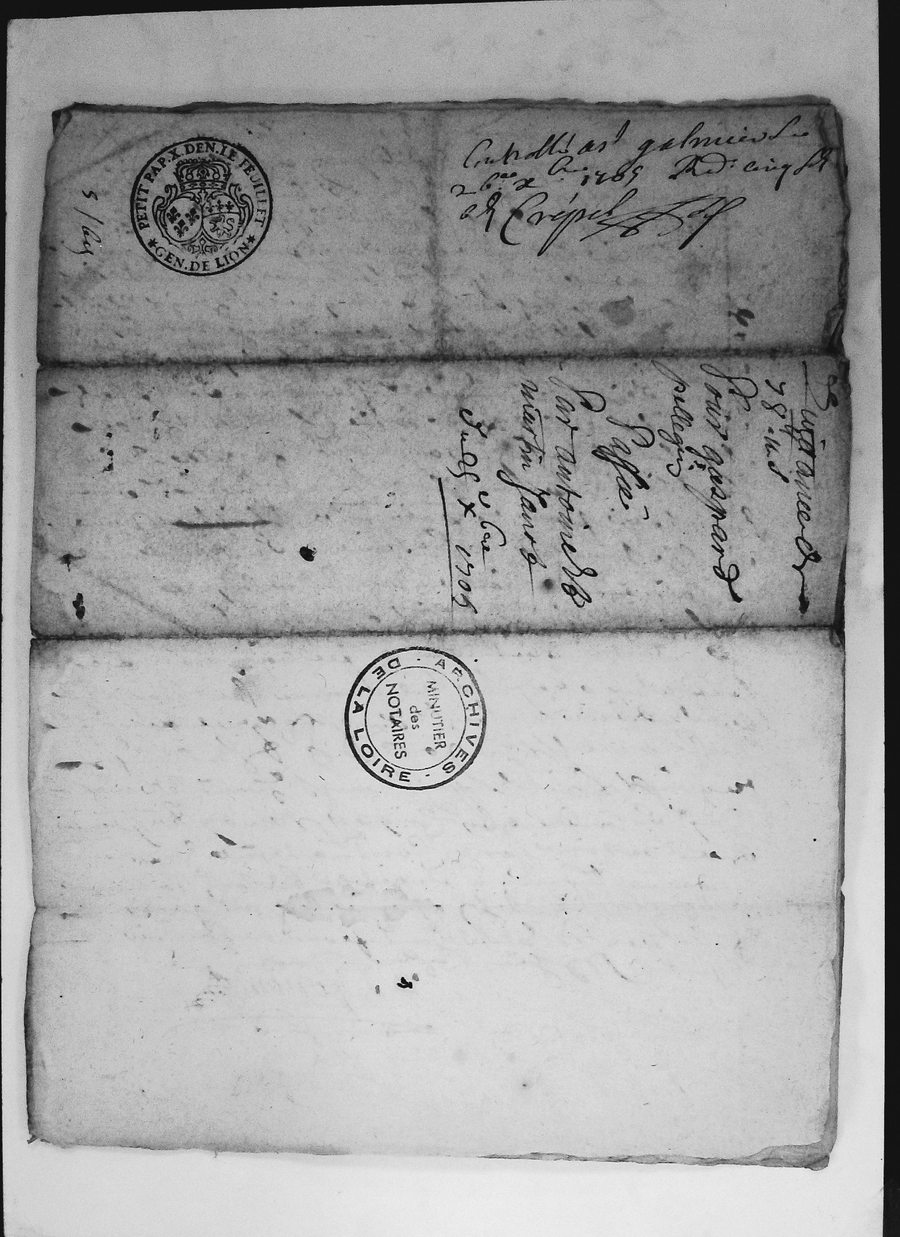 PETIT PAP. X DEN. LE FEUILLET
GEN. DE LION
Controllé a st galmier le
26me xbre 1705 cinq s
Crépet
Quittance de
78
Pour gaspard
pellegrin
Passé
Par antoine &
martin
Du 25 xbre 1705
ARCHIVES DE LA LOIRE
MINUTIER
des
NOTAIRES